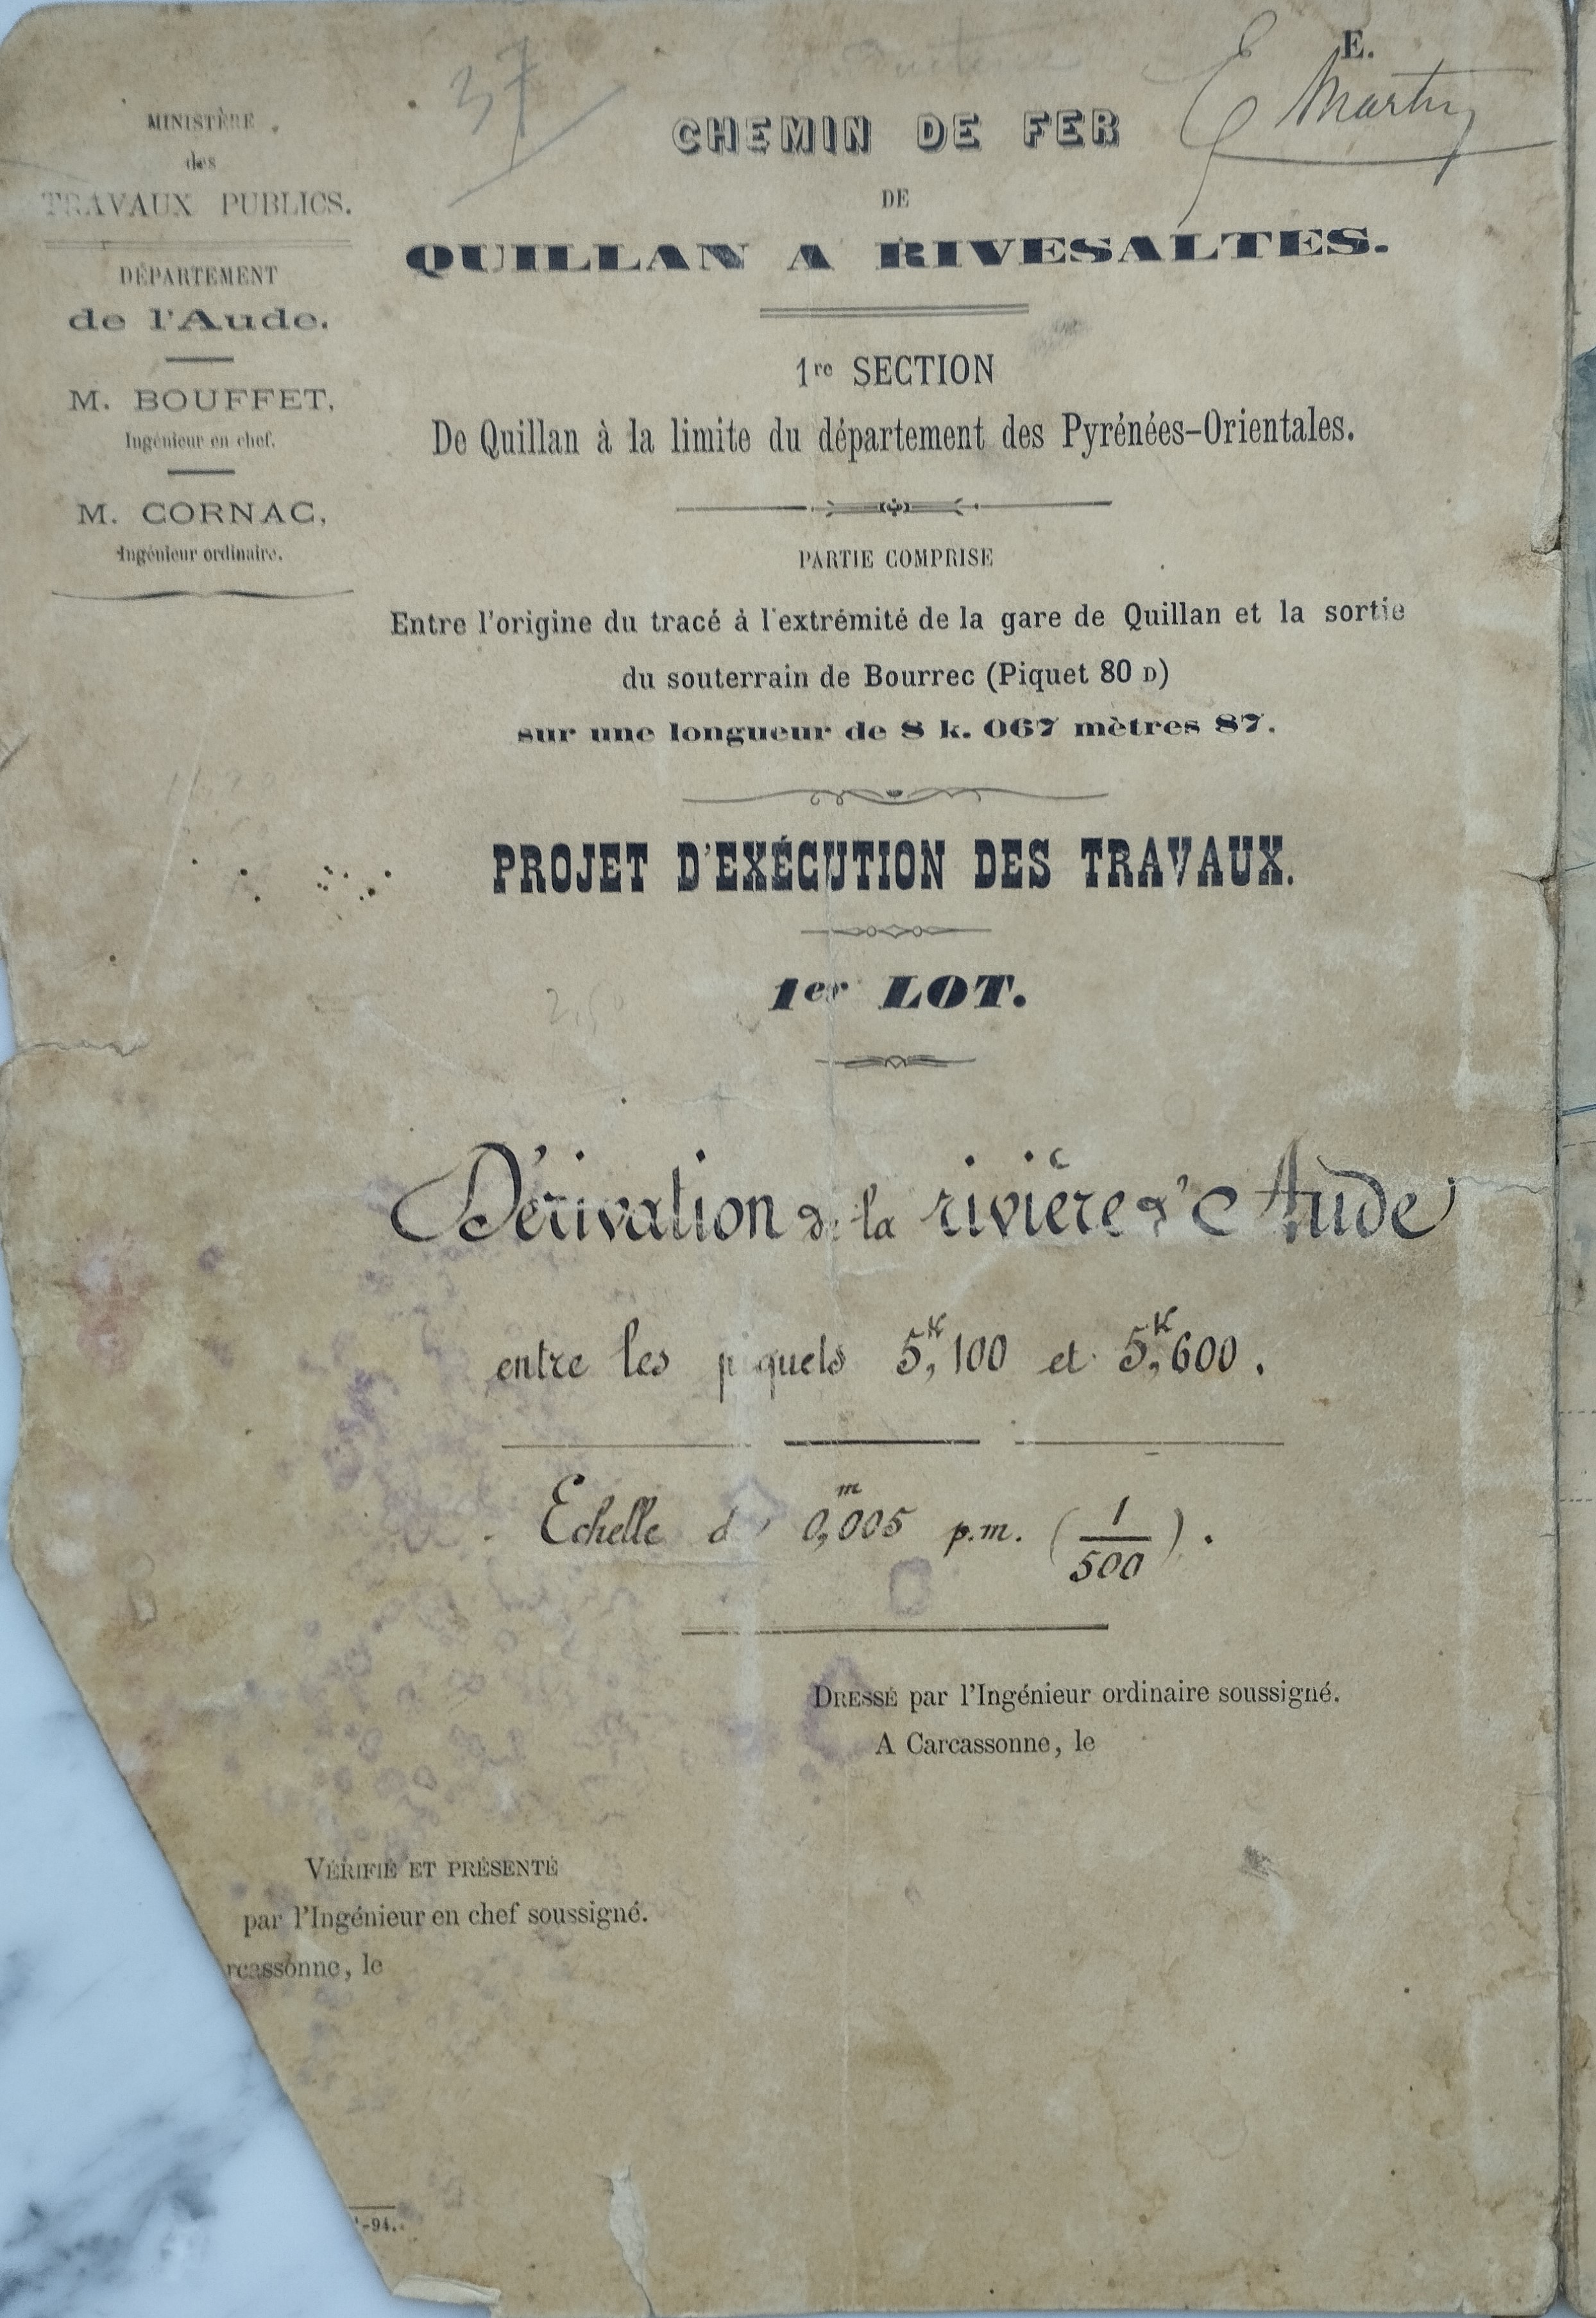 E.
E Martin
37
MINISTÈRE
des
TRAVAUX PUBLICS.
DÉPARTEMENT
de l'Aude.
M. BOUFFET,
Ingénieur en chef.
M. CORNAC,
Ingénieur ordinaire.
CHEMIN DE FER
DE
QUILLAN A RIVESALTES.
1re SECTION
De Quillan à la limite du département des Pyrénées-Orientales.
PARTIE COMPRISE
Entre l'origine du tracé à l'extrémité de la gare de Quillan et la sortie
du souterrain de Bourrec (Piquet 80 D)
sur une longueur de 8 k. 067 mètres 87.
PROJET D'EXÉCUTION DES TRAVAUX.
1er LOT.
2,50
Dérivation de la rivière d'Aude
entre les piquets 5,K100 et 5,K600.
Echelle de 0,m005 p.m. (1/500).
DRESSÉ par l'Ingénieur ordinaire soussigné.
A Carcassonne, le
VÉRIFIÉ ET PRÉSENTÉ
par l'Ingénieur en chef soussigné.
rcassonne, le
-94.